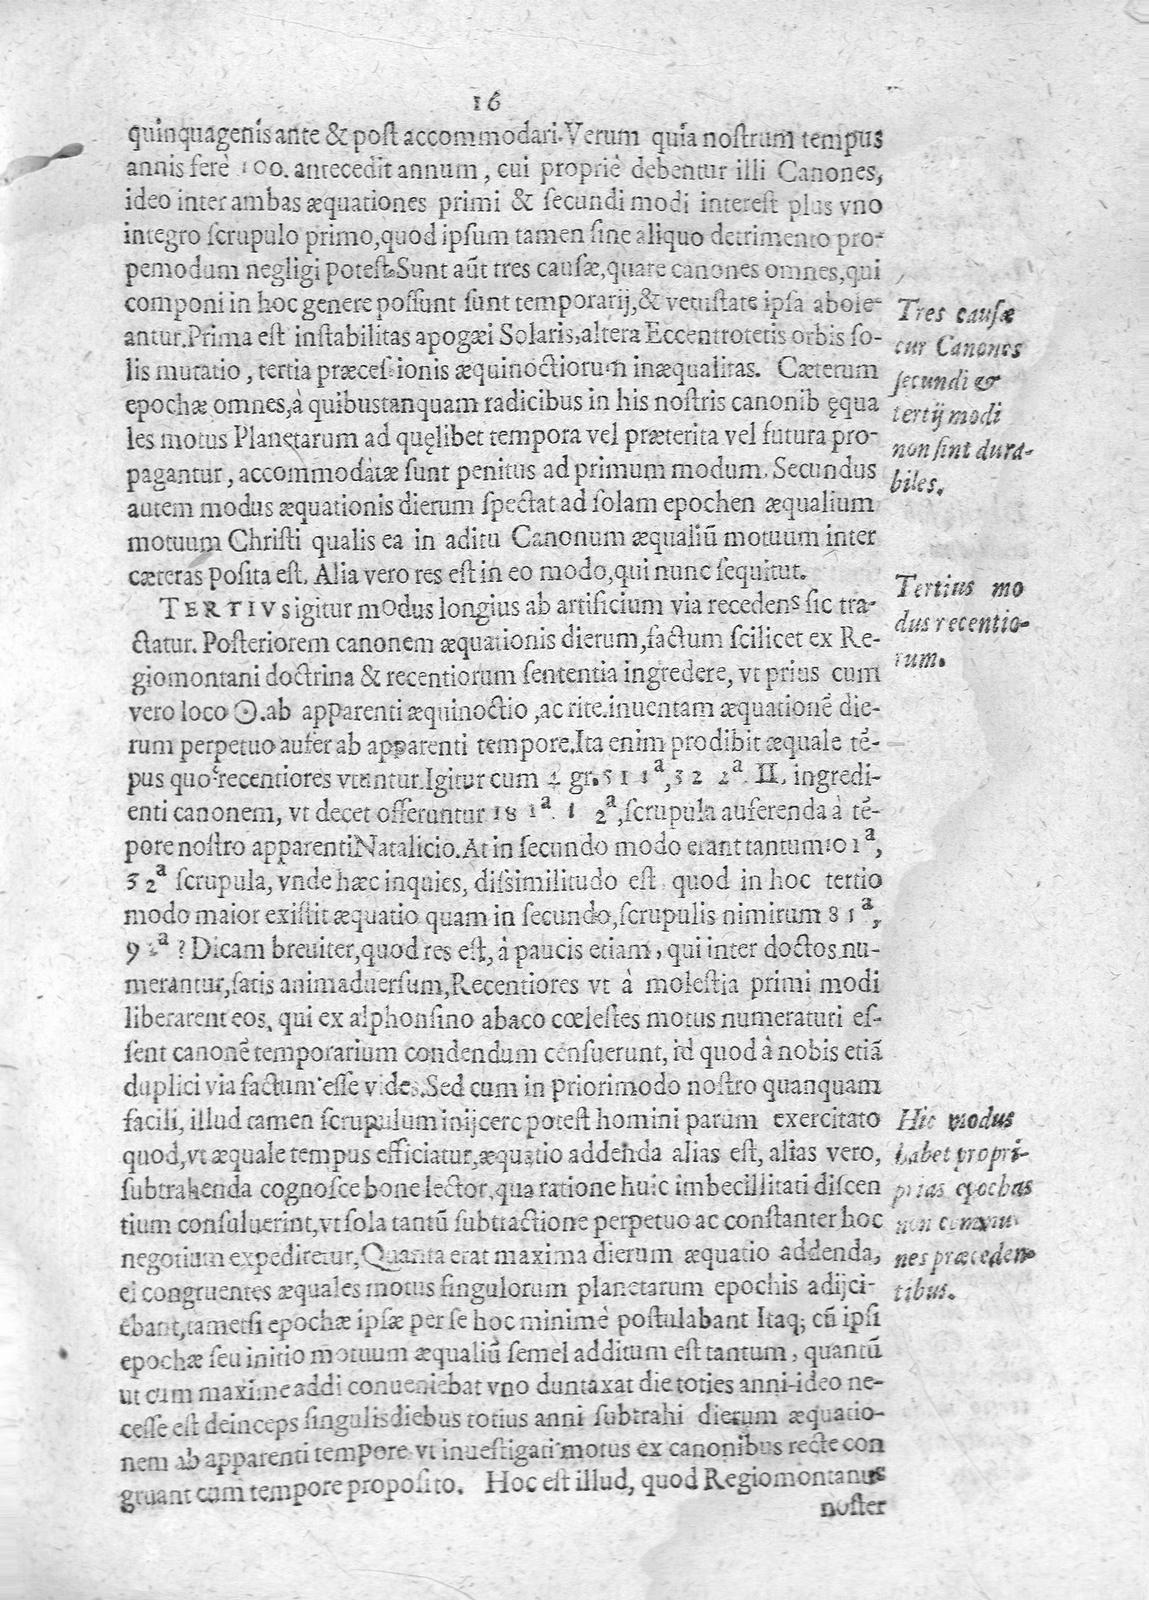 16
quinquagenis ante & poſt accommodari. Verum quia noſtrum tempus
annis ferè 100. antecedit annum, cui propriè debentur illi Canones,
ideo inter ambas æquationes primi & ſecundi modi intereſt plus vno
integro ſcrupulo primo, quod ipſum tamen ſine aliquo detrimento pro-
pemodum negligi poteſt. Sunt aūt tres cauſæ, quare canones omnes, qui
componi in hoc genere poſſunt ſunt temporarij, & vetuſtate ipſa abole-
antur. Prima eſt inſtabilitas apogæi Solaris, altera Eccentrotetis orbis ſo-
lis mutatio, tertia præceſsionis æquinoctiorum inæqualitas. Cæterum
epochæ omnes, à quibus tanquam radicibus in his noſtris canonib ęqua
les motus Planetarum ad quęlibet tempora vel præterita vel futura pro-
pagantur, accommodatæ ſunt penitus ad primum modum. Secundus
autem modus æquationis dierum ſpectat ad ſolam epochen æqualium
motuum Chriſti qualis ea in aditu Canonum æqualiū motuum inter
cæteras poſita eſt. Alia vero res eſt in eo modo, qui nunc ſequitur.
Tres cauſæ
cur Canones
ſecundi &
tertij modi
non ſint dura-
biles.
TERTIVS igitur modus longius ab artificium via recedens ſic tra-
ctatur. Poſteriorem canonem æquationis dierum, factum ſcilicet ex Re-
giomontani doctrina & recentiorum ſententia ingredere, vt prius cum
vero loco ☉. ab apparenti æquinoctio, ac rite inuentam æquationē die-
rum perpetuo aufer ab apparenti tempore. Ita enim prodibit æquale tē-
pus quo recentiores vtuntur. Igitur cum gr. 51 1ª, 32 2ª II. ingredi-
enti canonem, vt decet offeruntur 18 1ª. 1 2ª, ſcrupula auferenda à tē-
pore noſtro apparenti Natalicio. At in ſecundo modo erant tantum 10 1ª,
52ª ſcrupula, vnde hæc inquies, diſsimilitudo eſt quod in hoc tertio
modo maior exiſtit æquatio quam in ſecundo, ſcrupulis nimirum 8 1ª,
9 2ª? Dicam breuiter, quod res eſt, à paucis etiam, qui inter doctos nu-
merantur, ſatis animaduerſum, Recentiores vt à moleſtia primi modi
liberarent eos, qui ex alphonſino abaco cœleſtes motus numeraturi eſ-
ſent canonē temporarium condendum cenſuerunt, id quod à nobis etiā
duplici via factum eſſe vides. Sed cum in priori modo noſtro quanquam
facili, illud tamen ſcrupulum inijcere poteſt homini parum exercitato
quod, vt æquale tempus efficiatur, æquatio addenda alias eſt, alias vero,
ſubtrahenda cognoſce bone lector, qua ratione huic imbecillitati diſcen
tium conſuluerint, vt ſola tantū ſubtractione perpetuo ac conſtanter hoc
negotium expediretur, Quanta erat maxima dierum æquatio addenda,
ei congruentes æquales motus ſingulorum planetarum epochis adijci-
ebant, tametſi epochæ ipſæ per ſe hoc minimè poſtulabant Itaq; cū ipſi
epochæ ſeu initio motuum æqualiū ſemel additum eſt tantum, quantū
ut cum maxime addi conueniebat vno duntaxat die toties anni ideo ne-
ceſſe eſt deinceps ſingulis diebus totius anni ſubtrahi dierum æquatio-
nem ab apparenti tempore vt inueſtigati motus ex canonibus recte con
gruant cum tempore propoſito. Hoc eſt illud, quod Regiomontanus
noſter
Tertius mo
dus recentio-
rum.
Hic modus
habet propri-
prias epochas
non commu
nes præceden-
tibus.